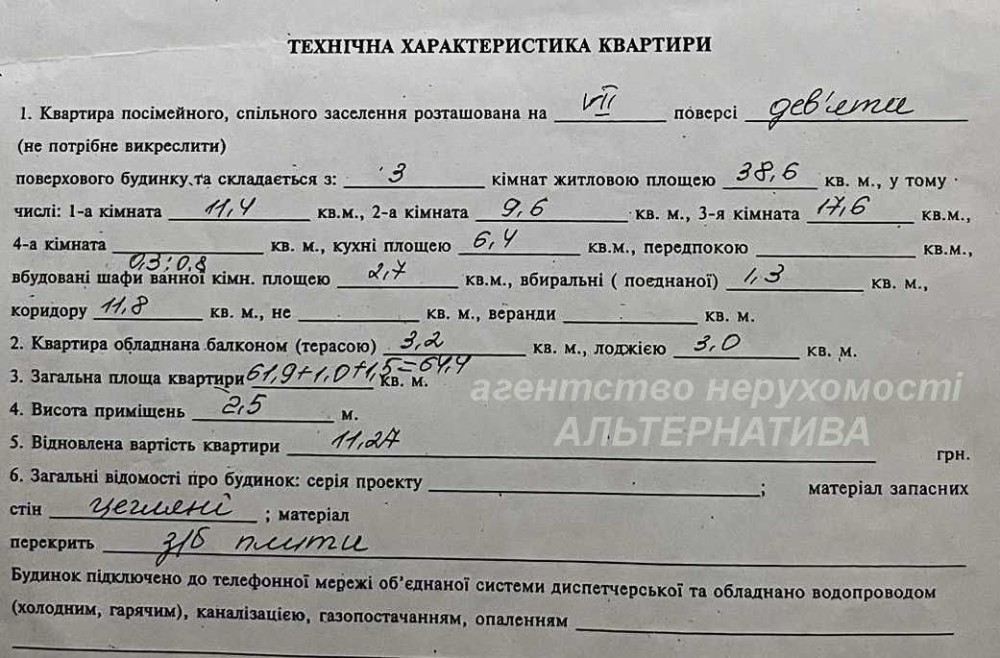 ТЕХНІЧНА ХАРАКТЕРИСТИКА КВАРТИРИ
1. Квартира посімейного, спільного заселення розташована на VII поверсі дев'яти
(не потрібне викреслити)
поверхового будинку та складається з: 3 кімнат житловою площею 38,6 кв. м., у тому
числі: 1-а кімната 11,4 кв.м., 2-а кімната 9,6 кв. м., 3-я кімната 17,6 кв.м.,
4-а кімната кв. м., кухні площею 6,4 кв.м., передпокою кв.м.,
0,3; 0,8
вбудовані шафи ванної кімн. площею 2,7 кв.м., вбиральні ( поєднаної) 1,3 кв. м.,
коридору 11,8 кв. м., не кв. м., веранди кв. м.
2. Квартира обладнана балконом (терасою) 3,2 кв. м., лоджією 3,0 кв. м.
3. Загальна площа квартири 61,9+1,0+1,5=64,4 кв. м.
агентство нерухомості
4. Висота приміщень 2,5 м.
АЛЬТЕРНАТИВА
5. Відновлена вартість квартири 11,27 грн.
6. Загальні відомості про будинок: серія проекту ; матеріал запасних
стін цегляні ; матеріал
перекрить з/б плити
Будинок підключено до телефонної мережі об'єднаної системи диспетчерської та обладнано водопроводом
(холодним, гарячим), каналізацією, газопостачанням, опаленням